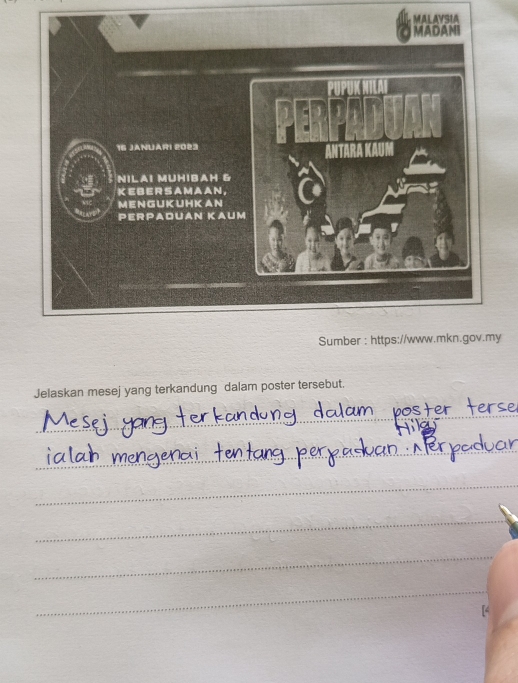 MALAYSIA
MADANI
PUPUK NILAI
PERPADUAN
ANTARA KAUM
16 JANUARI 2023
NILAI MUHIBAH &
KEBERSAMAAN,
MENGUKUHKAN
PERPADUAN KAUM
Sumber : https://www.mkn.gov.my
Jelaskan mesej yang terkandung dalam poster tersebut.
Mesej yang terkandung dalam poster terse
Nilai
ialah mengenai tentang perpaduan. Perpaduan